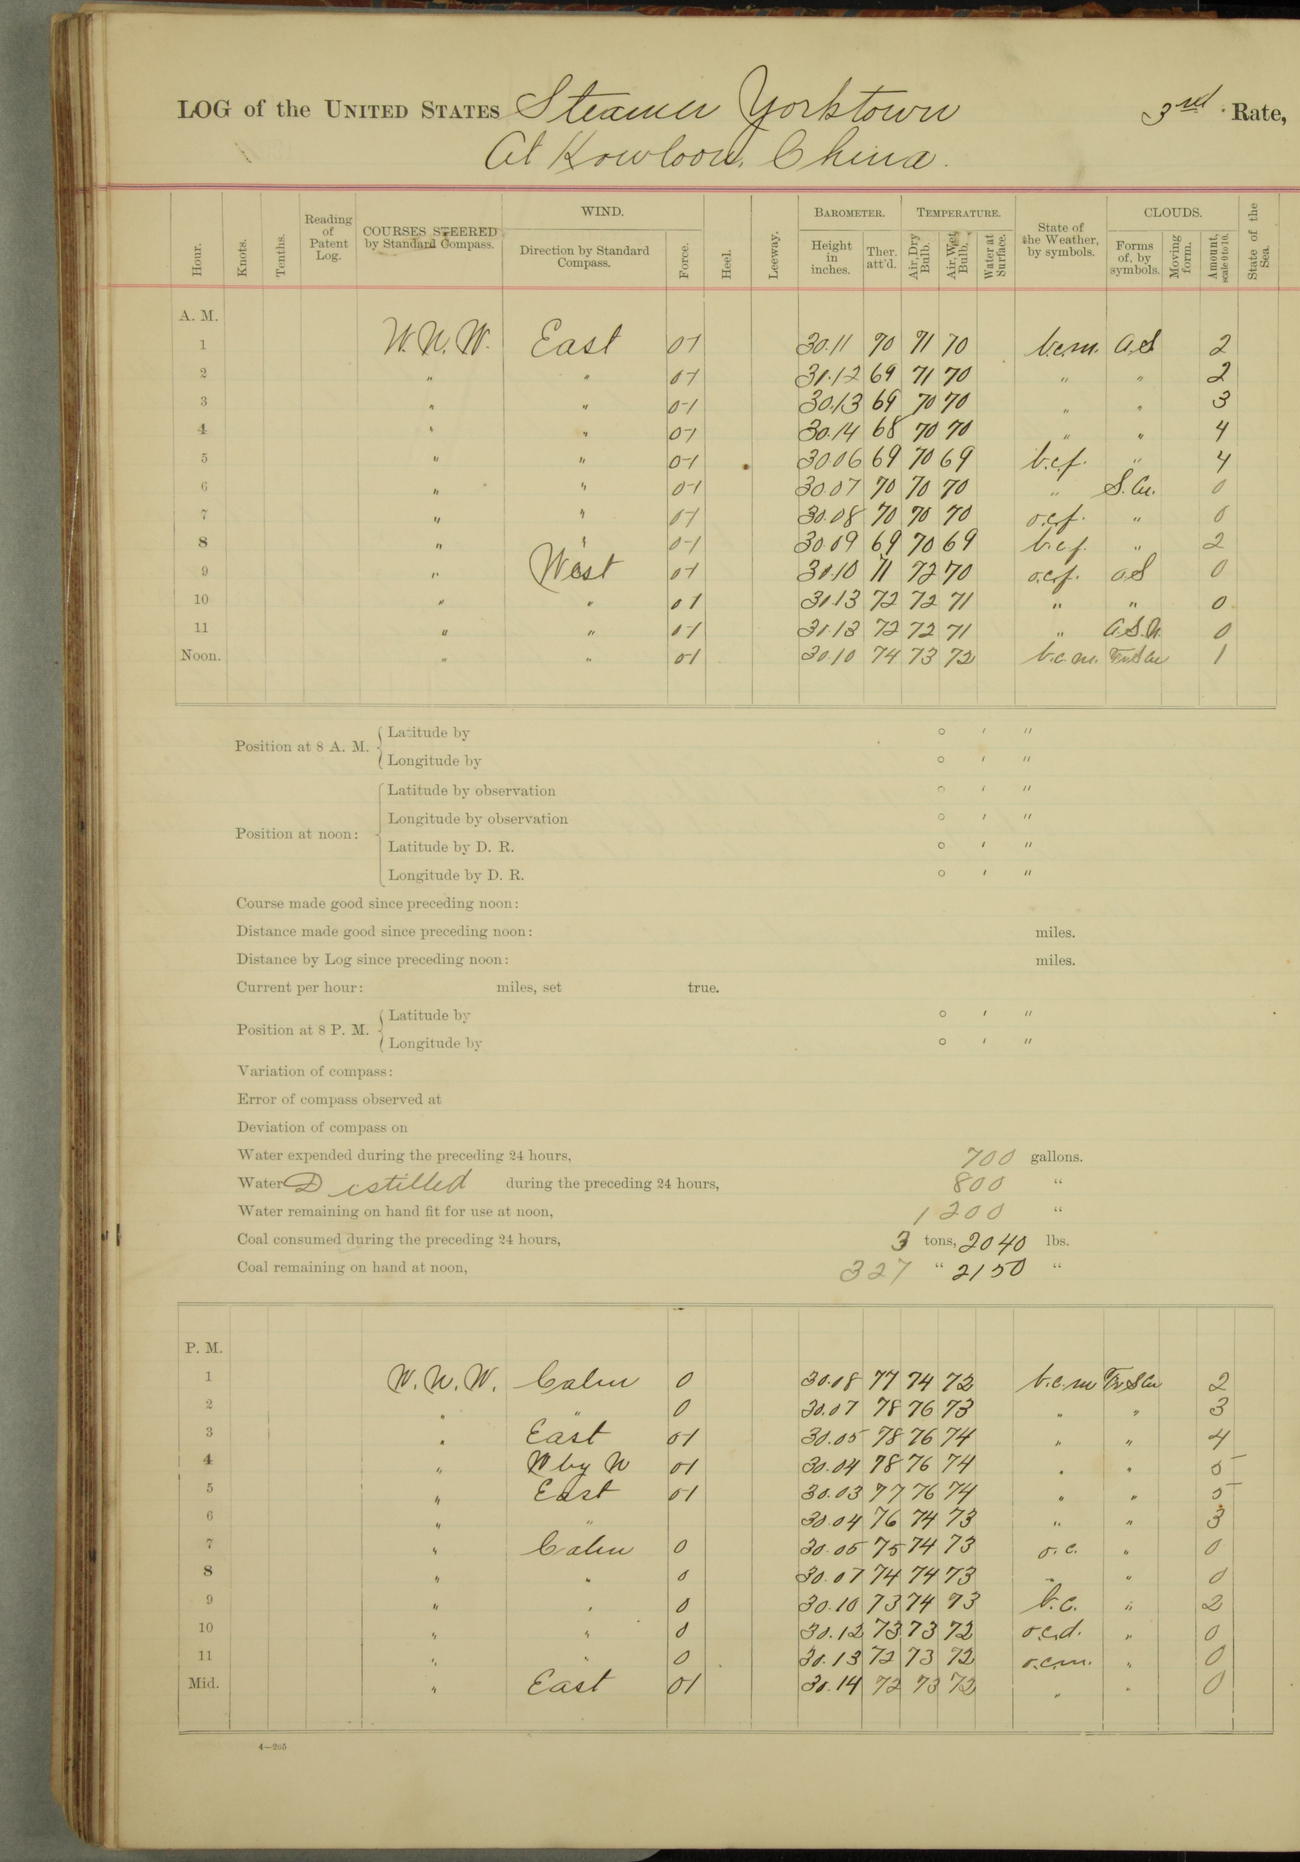 LOG of the UNITED STATES Steamer Yorktown 3rd Rate,
At Kowloon, China.
Hour. Knots. Tenths. Reading of Patent Log. COURSES STEERED by Standard Compass. WIND. Direction by Standard Compass. Force. Heel. Leeway. BAROMETER. Height in inches. Ther. att'd. TEMPERATURE. Air, Dry Bulb. Air, Wet Bulb. Water at Surface. State of the Weather, by symbols. CLOUDS. Forms of, by symbols. Moving form. Amount, scale 0 to 10. State of the Sea.
A. M.
1 W.N.W. East 01 30.11 70 71 70 b.c.m. A.S 2
2 " " 01 30.12 69 71 70 " " 2
3 " " 01 30.13 69 70 70 " " 3
4 " " 01 30.14 68 70 70 " " 4
5 " " 01 30.06 69 70 69 b.c.f. " 4
6 " " 01 30.07 70 70 70 " S.Cu. 0
7 " " 01 30.08 70 70 70 o.c.f. " 0
8 " " 01 30.09 69 70 69 b.c.f. " 2
9 " West 01 30.10 71 72 70 o.c.f. A.S 0
10 " " 01 30.13 72 72 71 " " 0
11 " " 01 30.13 72 72 71 " A.S.N. 0
Noon. " " 01 30.10 74 73 72 b.c.m. 1
Position at 8 A. M. Latitude by ° ' "
Longitude by ° ' "
Position at noon: Latitude by observation ° ' "
Longitude by observation ° ' "
Latitude by D. R. ° ' "
Longitude by D. R. ° ' "
Course made good since preceding noon:
Distance made good since preceding noon: miles.
Distance by Log since preceding noon: miles.
Current per hour: miles, set true.
Position at 8 P. M. Latitude by ° ' "
Longitude by ° ' "
Variation of compass:
Error of compass observed at
Deviation of compass on
Water expended during the preceding 24 hours, 700 gallons.
Water Distilled during the preceding 24 hours, 800 "
Water remaining on hand fit for use at noon, 1200 "
Coal consumed during the preceding 24 hours, 3 tons, 2040 lbs.
Coal remaining on hand at noon, 327 " 2150 "
P. M.
1 W.N.W. Calm 0 30.08 77 74 72 b.c.m 2
2 " " 0 30.07 78 76 73 " " 3
3 " East 01 30.05 78 76 74 " " 4
4 " W by N 01 30.04 78 76 74 " " 5
5 " East 01 30.03 77 76 74 " " 5
6 " " 30.04 76 74 73 " " 3
7 " Calm 0 30.05 75 74 73 o.c. " 0
8 " " 0 30.07 74 74 73 " " 0
9 " " 0 30.10 73 74 73 b.c. " 2
10 " " 0 30.12 73 73 72 o.c.d. " 0
11 " " 0 30.13 72 73 72 o.c.m. " 0
Mid. " East 01 30.14 72 73 72 " " 0
4—205